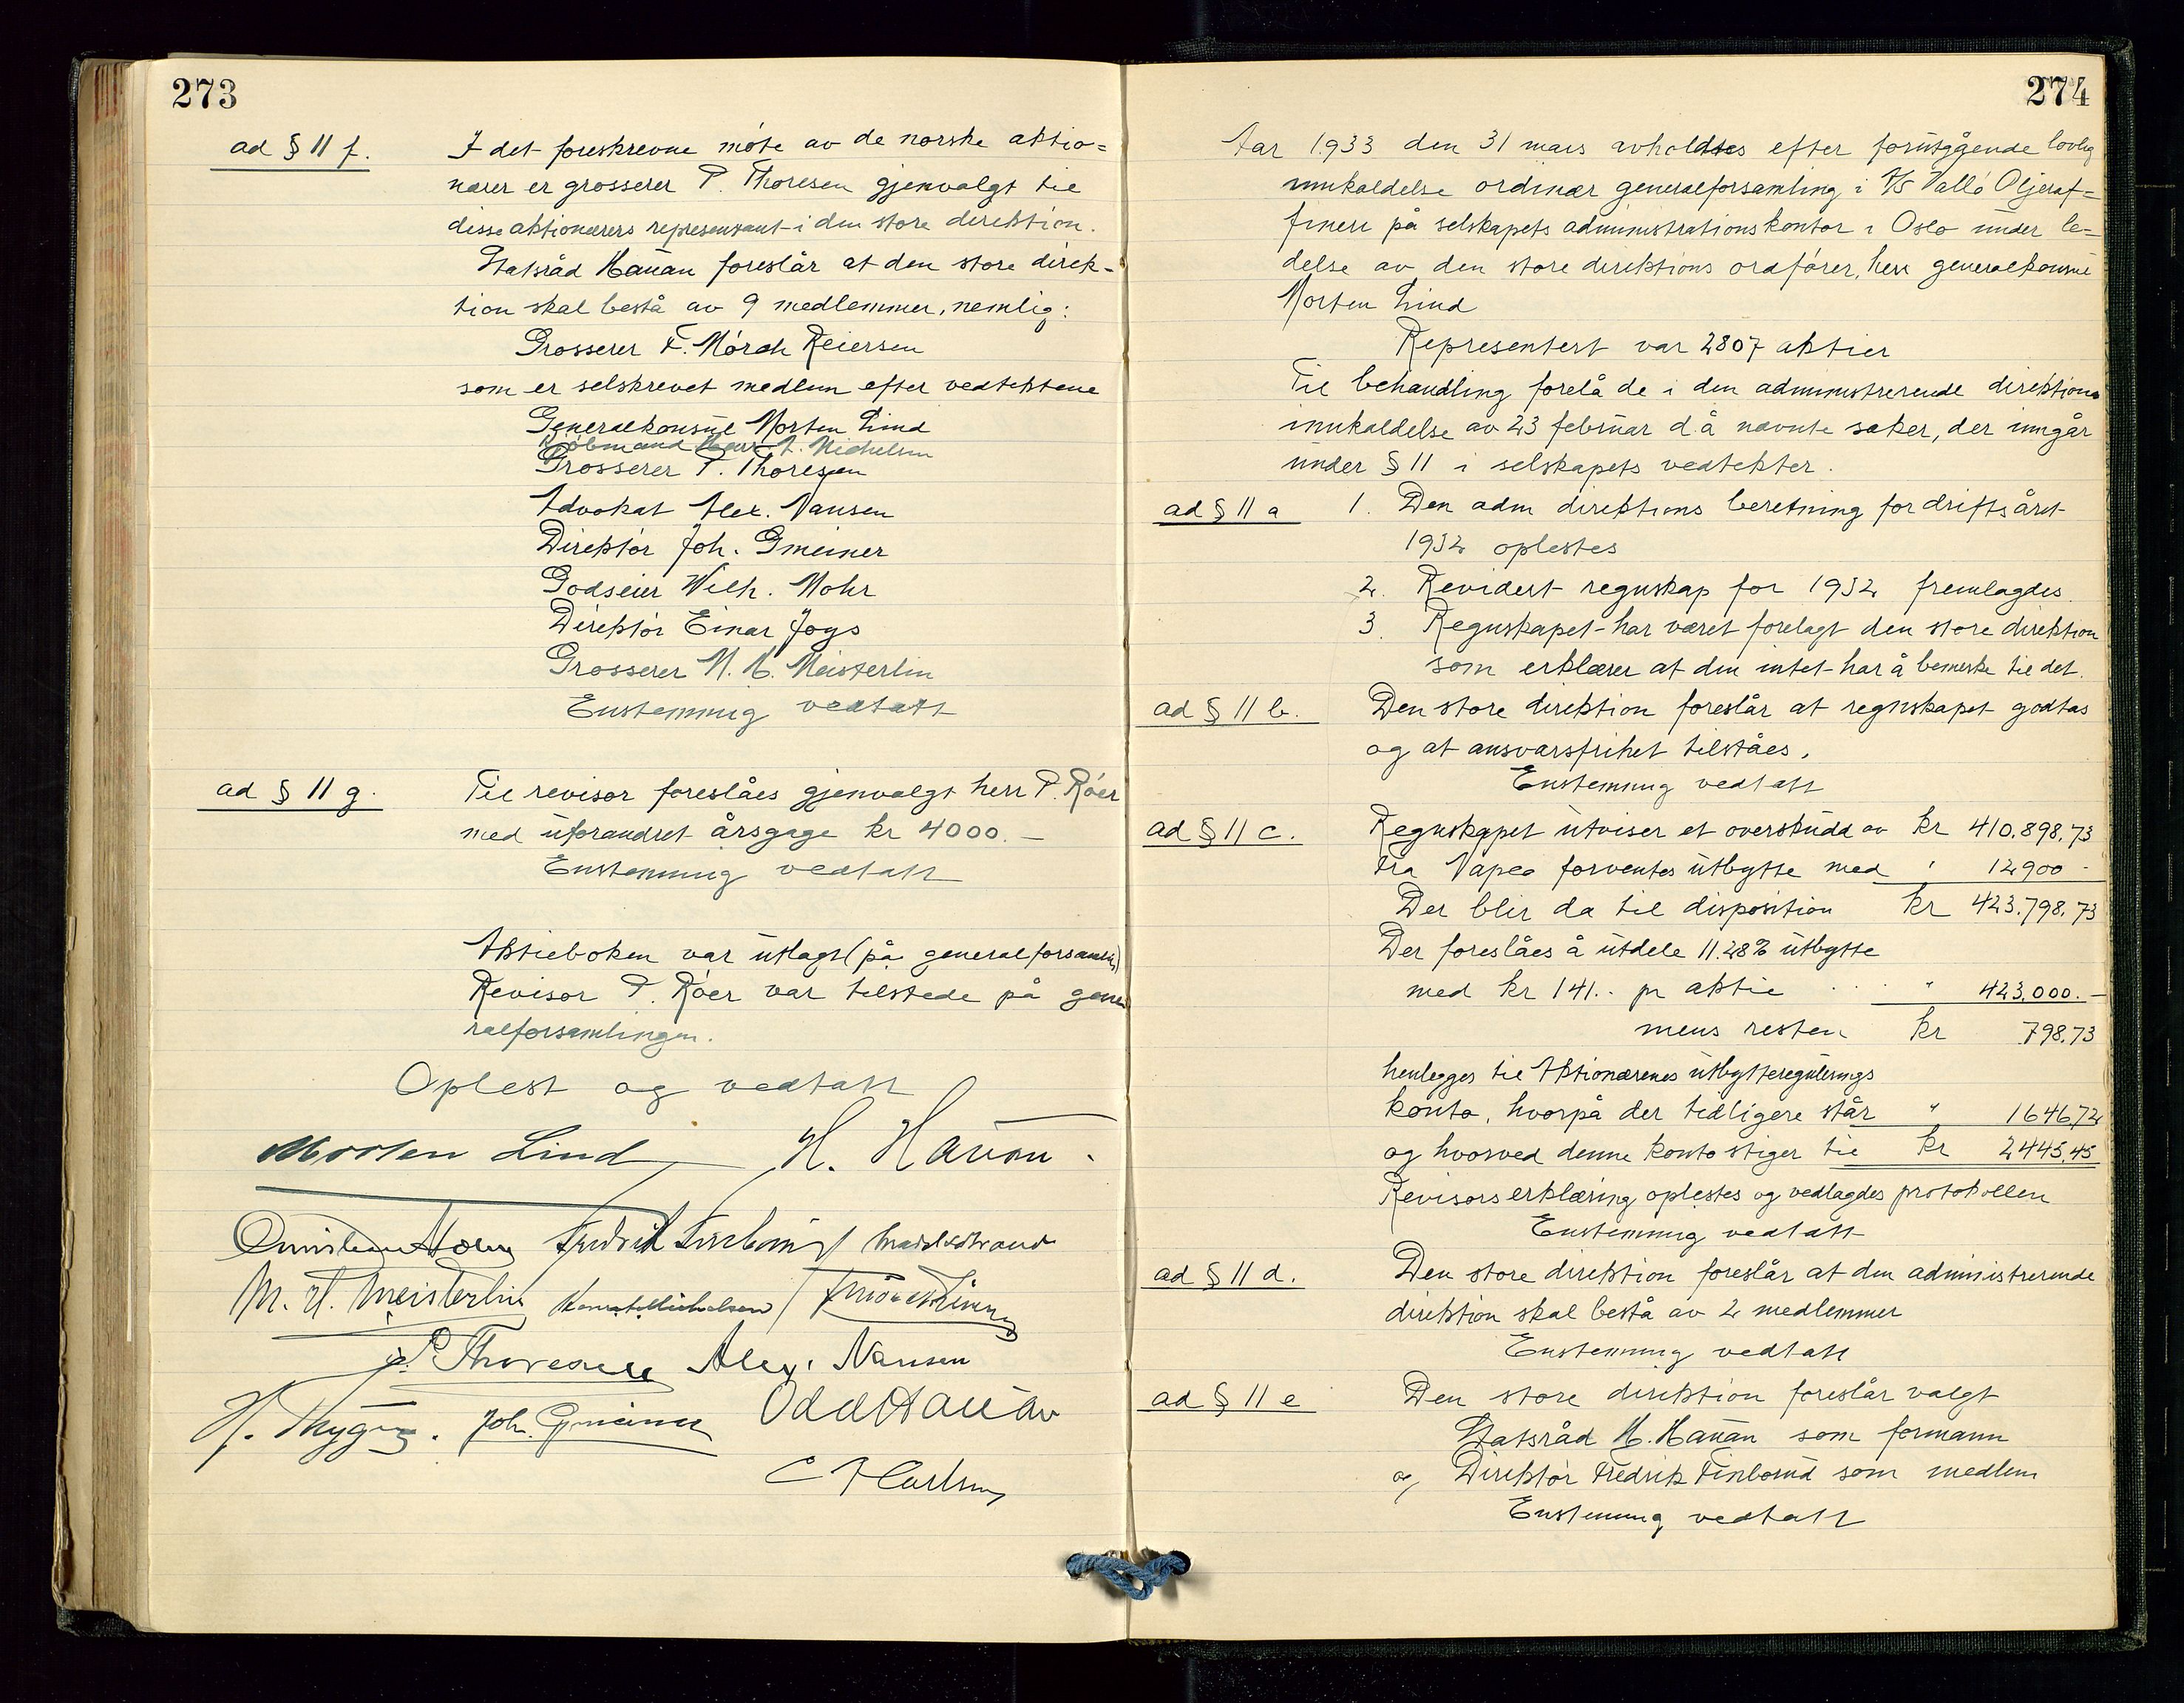 273
ad § 11 f. I det foreskrevne møte av de norske aktio=
nærer er grosserer P. Thoresen gjenvalgt til
disse aktionærers representant i den store direktion.
Statsråd Hauan foreslår at den store direk-
tion skal bestå av 9 medlemmer, nemlig:
Grosserer F. Mørch Reiersen
som er selskrevet medlem efter vedtektene
Generalkonsul Morten Lind
Kjøbmand A. Michelsen
Grosserer P. Thoresen
Advokat Alex. Nansen
Direktør Joh. Gmeiner
Godseier Wilh. Mohr
Direktør Einar Joys
Grosserer M. H. Meisterlin
Enstemmig vedtatt
ad § 11 g. Til revisor foreslåes gjenvalgt herr P. Röer
med uforandret årsgage kr 4000.-
Enstemmig vedtatt
Aktieboken var utlagt (på generalforsamlin)
Revisor P. Röer var tilstede på gene
ralforsamlingen.
Oplest og vedtatt
Morten Lind H. Hauan.
Fredrik
M. H. Meisterlin
P. Thoresen Alex. Nansen
Joh. Gmeiner Odd Hauan
274
Aar 1933 den 31 mars avholdtes efter forutgående lovlig
innkaldelse ordinær generalforsamling i A/S Vallö Oljeraf=
fineri på selskapets administrationskontor i Oslo under le=
delse av den store direktions ordfører, herr generalkonsul
Morten Lind
Representert var 2807 aktier
Til behandling forelå de i den administrerende direktions
innkaldelse av 23 februar d.å nævnte saker, der inngår
under § 11 i selskapets vedtekter.
ad § 11 a 1. Den adm direktions beretning for driftsåret
1932 oplestes
2. Revidert regnskap for 1932 fremlagdes.
3. Regnskapet har været forelagt den store direktion
som erklærer at den intet har å bemerke til det.
ad § 11 b. Den store direktion foreslår at regnskapet godtas
og at ansvarsfrihet tilståes.
Enstemmig vedtatt
ad § 11 c. Regnskapet utviser et overskudd av kr 410.898,73
Fra Vapea forventes utbytte med " 12900 -
Der blir da til disposition kr 423.798,73
Der foreslåes å utdele 11.28% utbytte
med kr 141.- pr aktie " 423.000.-
mens resten kr 798,73
henlegges til Aktionærenes utbytteregulerings
konto, hvorpå der tidligere står " 1646,72
og hvorved denne konto stiger til kr 2445,45
Revisors erklæring oplestes og vedlagdes protokollen
Enstemmig vedtatt
ad § 11 d. Den store direktion foreslår at den administrerende
direktion skal bestå av 2 medlemmer
Enstemmig vedtatt
ad § 11 e Den store direktion foreslår valgt
Statsråd H. Hauan som formann
og Direktør Fredrik Finborud som medlem
Enstemmig vedtatt